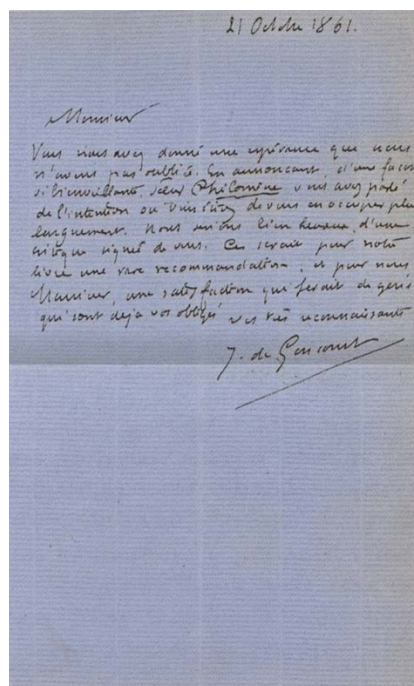 21 Octobre 1861.
Monsieur
Vous nous avez donné une espérance que nous
n'avons pas oublié. En annonçant, d'une façon
si bienveillante, Sœur Philomène vous avez parlé
de l'intention où vous étiez de vous en occuper plus
longuement. Nous serions bien heureux, d'une
critique signée de vous. Ce serait pour notre
livre une rare recommandation, et pour nous
Monsieur, une satisfaction qui ferait de gens
qui sont déjà vos obligés vos très reconnaissants
J. de Goncourt